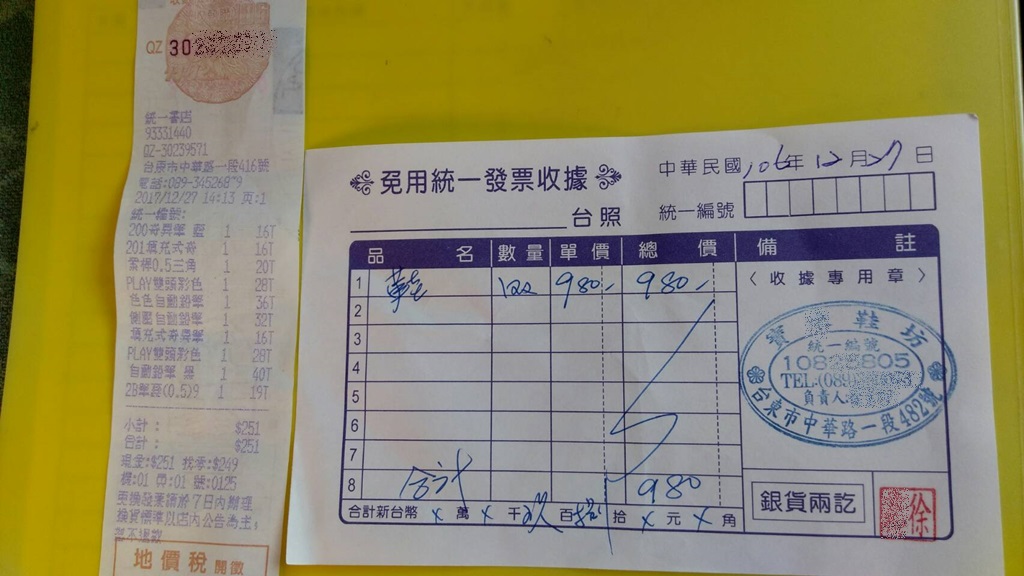 QZ 302
統一書店
93331440
QZ-30239571
台東市中華路一段416號
電話:089-345268
2017/12/27 14:13 頁:1
統一編號:
200奇異筆 藍 1 16T
201填充式奇 1 16T
0.5三角 1 20T
PLAY雙頭彩色 1 28T
色色自動鉛筆 1 36T
側壓自動鉛筆 1 32T
填充式奇異筆 1 16T
PLAY雙頭彩色 1 28T
自動鉛筆 黑 1 40T
2B筆芯(0.5)9 1 19T
小計: $251
合計: $251
現金:$251 找零:$249
機:01 序:01 號:0125
更換發票請於7日內辦理
換貨標準以店內公告為主,
地價稅 開徵
免用統一發票收據
中華民國 106年 12月 27日
台照
統一編號
品名 數量 單價 總價 備註
1 鞋 980.- 980.-
〈收據專用章〉
2
3
4
5
6
7
8 合計 980
寶 鞋坊
統一編號
108 805
TEL:(089)
負責人:
台東市中華路一段482號
銀貨兩訖
徐
合計新台幣 × 萬 × 千 玖 百 捌 拾 × 元 × 角